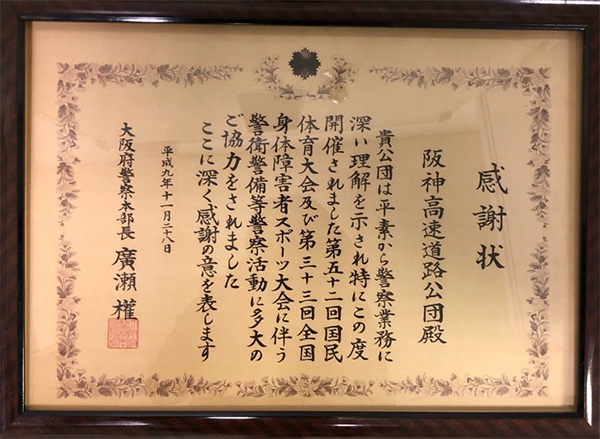 感謝状
阪神高速道路公団殿
貴公団は平素から警察業務に
深い理解を示され特にこの度
開催されました第五十二回国民
体育大会及び第三十三回全国
身体障害者スポーツ大会に伴う
警衛警備等警察活動に多大の
ご協力をされました
ここに深く感謝の意を表します
平成九年十一月二十八日
大阪府警察本部長 廣瀬 權